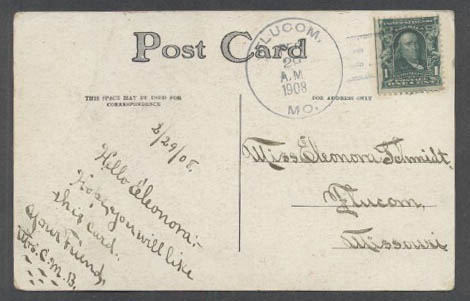 Post Card
FLUCOM,
26
A.M
1908
MO.
1
1
THIS SPACE MAY BE USED FOR
CORRESPONDENCE
FOR ADDRESS ONLY
2/29/08.
Hello Eleonora:-
Hope you will like
this card.
Your Friend,
C.M.B.
Miss Eleonora Schmidt.
Flucom,
Missouri